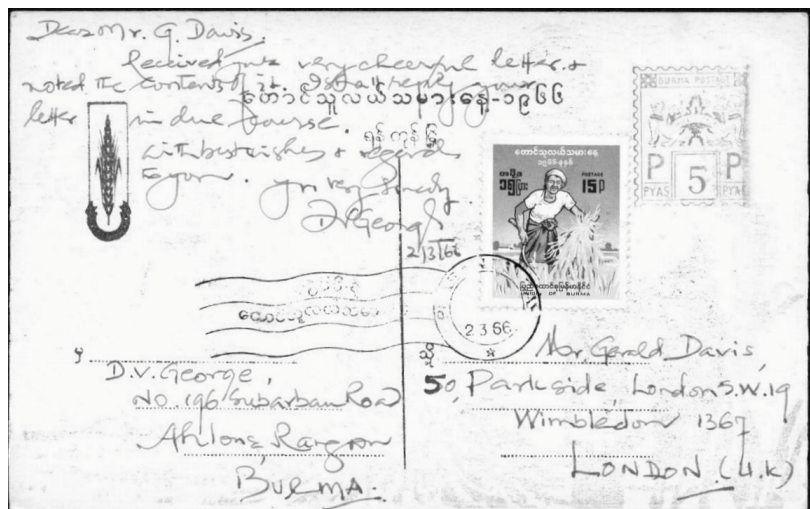 Dear Mr. G. Davis,
Received your very cheerful letter &
noted the contents of it. I shall reply your
letter in due course.
with best wishes & regards
to you.
yrs very sincerely
D.V. George
2/3/66
တောင်သူလယ်သမားနေ့-၁၉၆၆
ရန်ကုန်မြို့
BURMA POSTAGE
P 5 P
PYAS PYAS
တောင်သူလယ်သမားနေ့
၁၅ပြား
POSTAGE
15P
ပြည်ထောင်စုမြန်မာနိုင်ငံ
UNION OF BURMA
တောင်သူလယ်သမား
2.3.66
မှ
D.V. George,
No. 196 Subarban Road
Ahlone, Rangoon
BURMA.
သို့
Mr. Gerald Davis,
50, Parkside, London S.W.19
Wimbledon 1367
LONDON (U.K)